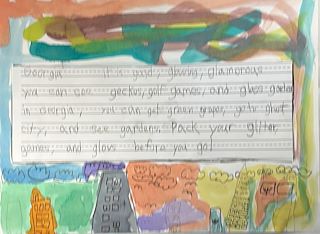 Georgia it is good, glowing, glamorous
you can see geckos, golf games, and glass garden
in Georgia, you can get green grapes, go to ghost
city, and see gardens. Pack your glitter,
games, and glove before you go!